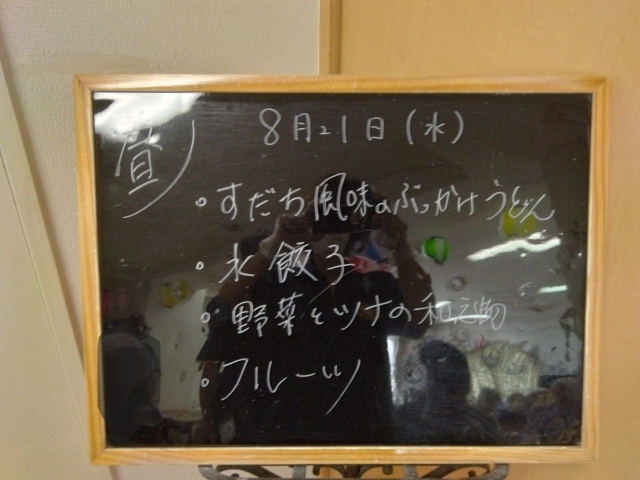 8月21日(水)
昼
・すだち風味のぶっかけうどん
・水餃子
・野菜とツナの和え物
・フルーツ